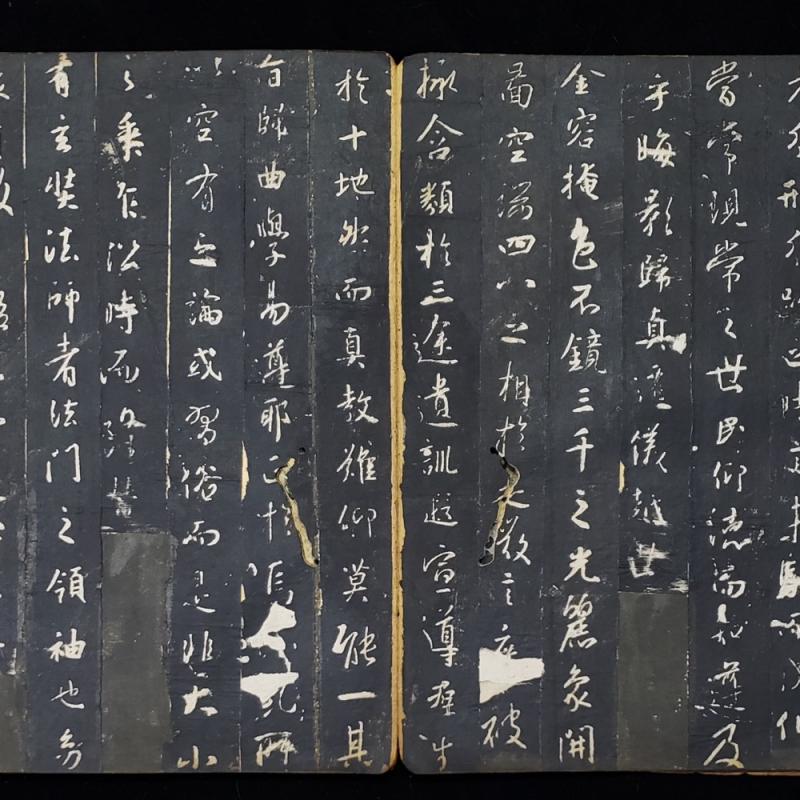 分形分跡之時言未馳而成化
當常現常之世民仰德而知遵及
乎晦影歸真遷儀越世
金容掩色不鏡三千之光麗象開
圖空端四八之相於是微言廣被
拯含類於三途遺訓遐宣導群生
於十地然而真教難仰莫能一其
旨歸曲學易遵邪正於焉糾所
以空有之論或習俗而是非大小
之乘乍沿時而隆替
有玄奘法師者法門之領袖也幼